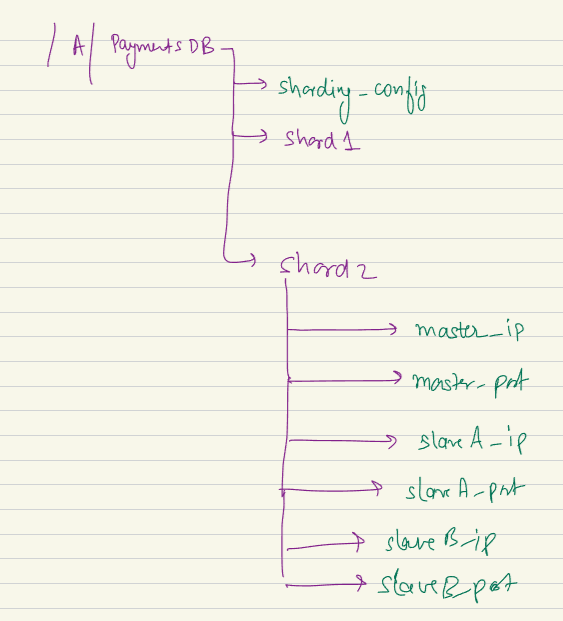 /A/ Payments DB
sharding_config
Shard 1
Shard 2
master_ip
master_port
slave A_ip
slave A_port
slave B_ip
slave B_port